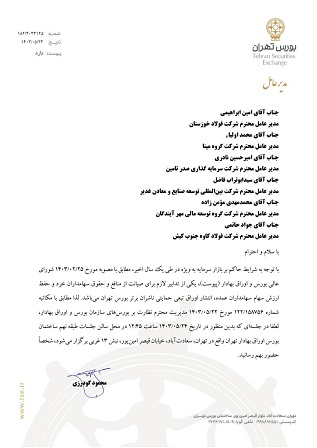 شماره: ۱۸۲/۲۰۲۳۱۲۵
تاریخ: ۱۴۰۳/۰۵/۲۳
پیوست: دارد
بورس تهران
Tehran Securities
Exchange
مدیرعامل
جناب آقای امین ابراهیمی
مدیر عامل محترم شرکت فولاد خوزستان
جناب آقای محمد اولیاء
مدیر عامل محترم شرکت گروه مپنا
جناب آقای امیرحسین نادری
مدیر عامل محترم شرکت سرمایه گذاری صدر تامین
جناب آقای سیدابوتراب فاضل
مدیر عامل محترم شرکت بین‌المللی توسعه صنایع و معادن غدیر
جناب آقای محمدمهدی مؤمن زاده
مدیر عامل محترم شرکت گروه توسعه مالی مهر آیندگان
جناب آقای جواد حاتمی
مدیر عامل محترم شرکت فولاد کاوه جنوب کیش
با سلام و احترام
با توجه به شرایط حاکم بر بازار سرمایه به ویژه در طی یک سال اخیر، مطابق با مصوبه مورخ ۱۴۰۳/۰۲/۲۵ شورای
عالی بورس و اوراق بهادار (پیوست)، یکی از تدابیر لازم برای صیانت از منافع و حقوق سهامداران خرد و حفظ
ارزش سهام سهامداران عمده، انتشار اوراق تبعی حمایتی ناشران برتر بورس تهران می‌باشد. لذا مطابق با مکاتبه
شماره ۱۲۲/۱۵۸۷۵۶ مورخ ۱۴۰۳/۰۵/۲۲ مدیریت محترم نظارت بر بورس‌های سازمان بورس و اوراق بهادار،
لطفا در جلسه‌ای که بدین منظور در تاریخ ۱۴۰۳/۰۵/۲۴ ساعت ۱۲:۴۵ در محل سالن جلسات طبقه نهم ساختمان
بورس اوراق بهادار تهران واقع در تهران، سعادت آباد، خیابان قیصر امین‌پور، نبش ۱۳ غربی برگزار می‌شود، شخصاً
حضور بهم رسانید.
محمود گودرزی
www.tse.ir